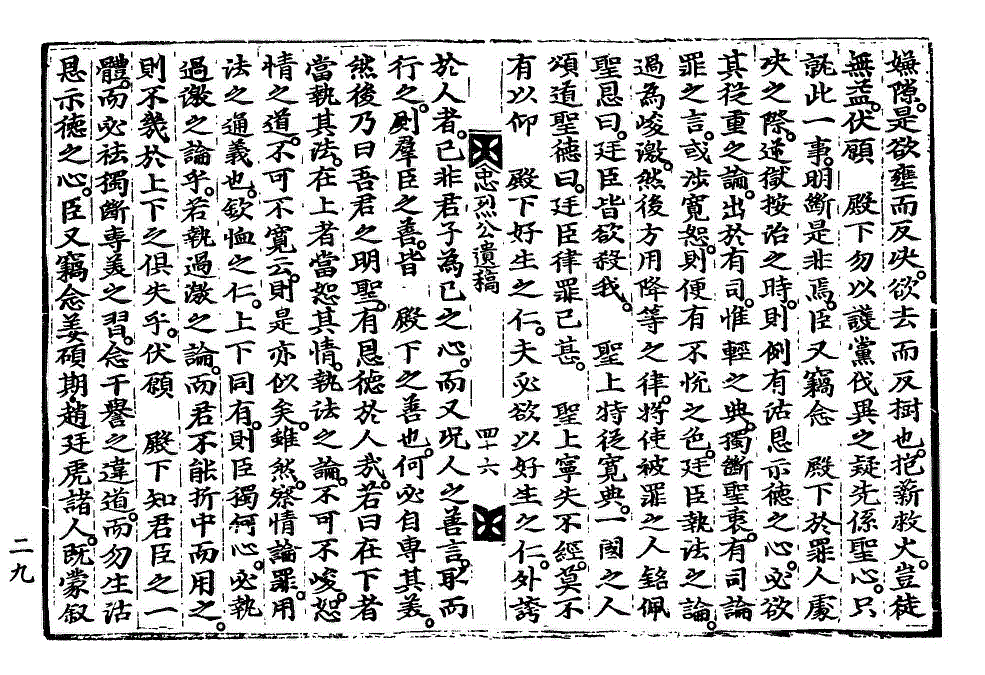 嫌隙。是欲壅而反决。欲去而反樹也。抱薪救火。豈徒
無益。伏願　殿下勿以護黨伐異之疑先係聖心。只
就此一事。明斷是非焉。臣又竊念　殿下於罪人處
决之際。逆獄按治之時。則例有沽恩示德之心。必欲
其從重之論。出於有司。惟輕之典。獨斷聖衷。有司論
罪之言。或涉寬恕。則便有不悅之色。廷臣執法之論。
過爲峻激。然後方用降等之律。將使被罪之人銘佩
聖恩曰。廷臣皆欲殺我。　聖上特從寬典。一國之人
頌道聖德曰。廷臣律罪已甚。　聖上寧失不經。莫不
有以仰　殿下好生之仁。夫必欲以好生之仁。外誇
忠烈公遺稿　四十六
於人者。已非君子爲己之心。而又況人之善言。取而
行之。則羣臣之善。皆　殿下之善也。何必自專其美。
然後乃曰吾君之明聖。有恩德於人哉。若曰在下者
當執其法。在上者當恕其情。執法之論。不可不峻。恕
情之道。不可不寬云。則是亦似矣。雖然。察情論罪。用
法之通義也。欽恤之仁。上下同有。則臣獨何心。必執
過激之論乎。若執過激之論。而君不能折中而用之。
則不幾於上下之俱失乎。伏願　殿下知君臣之一
體。而必祛獨斷專美之習。念干譽之違道。而勿生沽
恩示德之心。臣又竊念姜碩期，趙廷虎諸人。旣蒙叙
二九